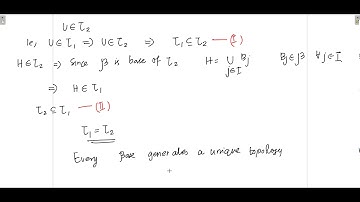 U ∈ τ₂
Ie, U ∈ τ₁ ⇒ U ∈ τ₂ ⇒ τ₁ ⊆ τ₂ — (I)
H ∈ τ₂ ⇒ Since β is base of τ₂ H = ∪ Bj j∈I Bj ∈ β ∀ j ∈ I
⇒ H ∈ τ₁
τ₂ ⊆ τ₁ — (II)
τ₁ = τ₂
Every Base generates a unique topology